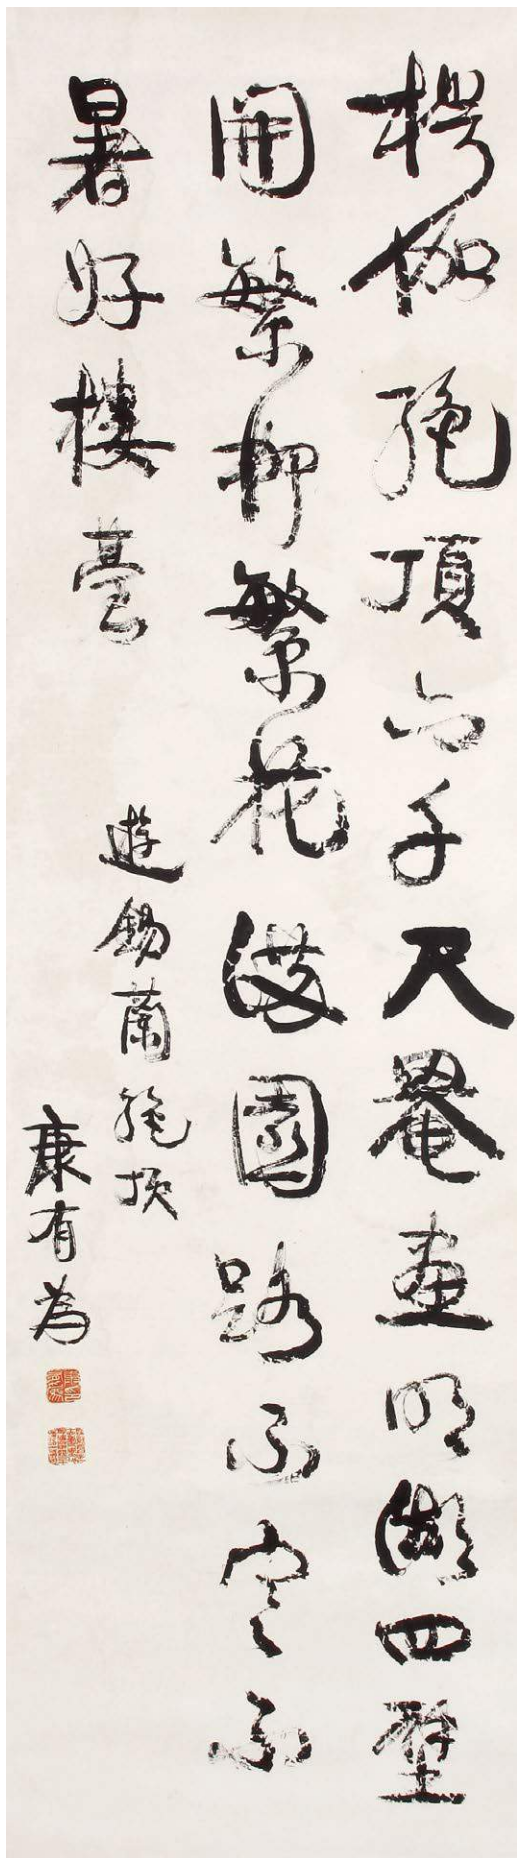 楞伽絕頂六千尺罨畫明湖四壁
開繁柳繁花滿園路不寒不
暑好樓臺
遊錫蘭絕頂
康有為